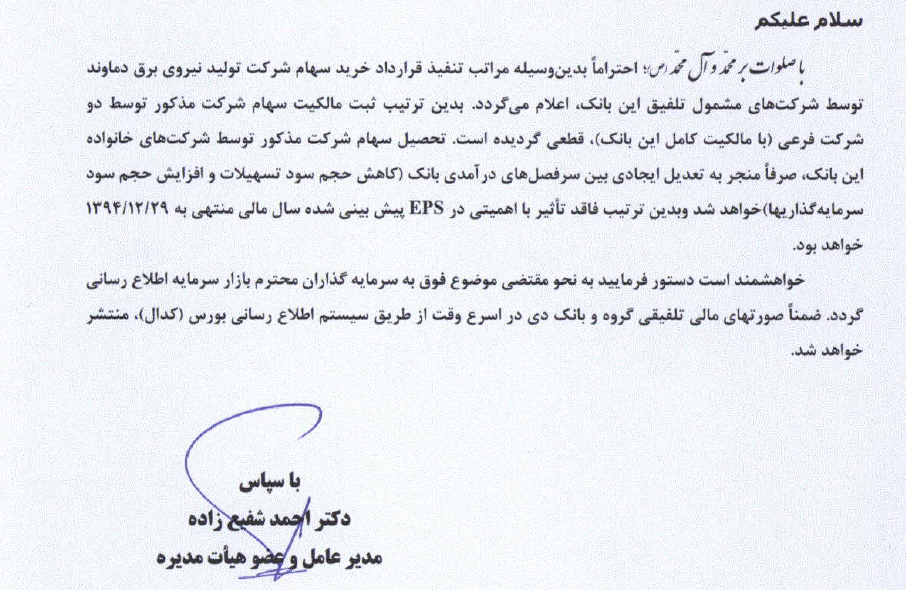 سلام علیکم
با صلوات بر محمّد و آل محمّد (ص)؛ احتراماً بدین‌وسیله مراتب تنفیذ قرارداد خرید سهام شرکت تولید نیروی برق دماوند
توسط شرکت‌های مشمول تلفیق این بانک، اعلام می‌گردد. بدین ترتیب ثبت مالکیت سهام شرکت مذکور توسط دو
شرکت فرعی (با مالکیت کامل این بانک)، قطعی گردیده است. تحصیل سهام شرکت مذکور توسط شرکت‌های خانواده
این بانک، صرفاً منجر به تعدیل ایجادی بین سرفصل‌های درآمدی بانک (کاهش حجم سود تسهیلات و افزایش حجم سود
سرمایه‌گذاریها)خواهد شد وبدین ترتیب فاقد تأثیر با اهمیتی در EPS پیش بینی شده سال مالی منتهی به ۱۳۹۴/۱۲/۲۹
خواهد بود.
خواهشمند است دستور فرمایید به نحو مقتضی موضوع فوق به سرمایه گذاران محترم بازار سرمایه اطلاع رسانی
گردد. ضمناً صورتهای مالی تلفیقی گروه و بانک دی در اسرع وقت از طریق سیستم اطلاع رسانی بورس (کدال)، منتشر
خواهد شد.
با سپاس
دکتر احمد شفیع زاده
مدیر عامل و عضو هیأت مدیره